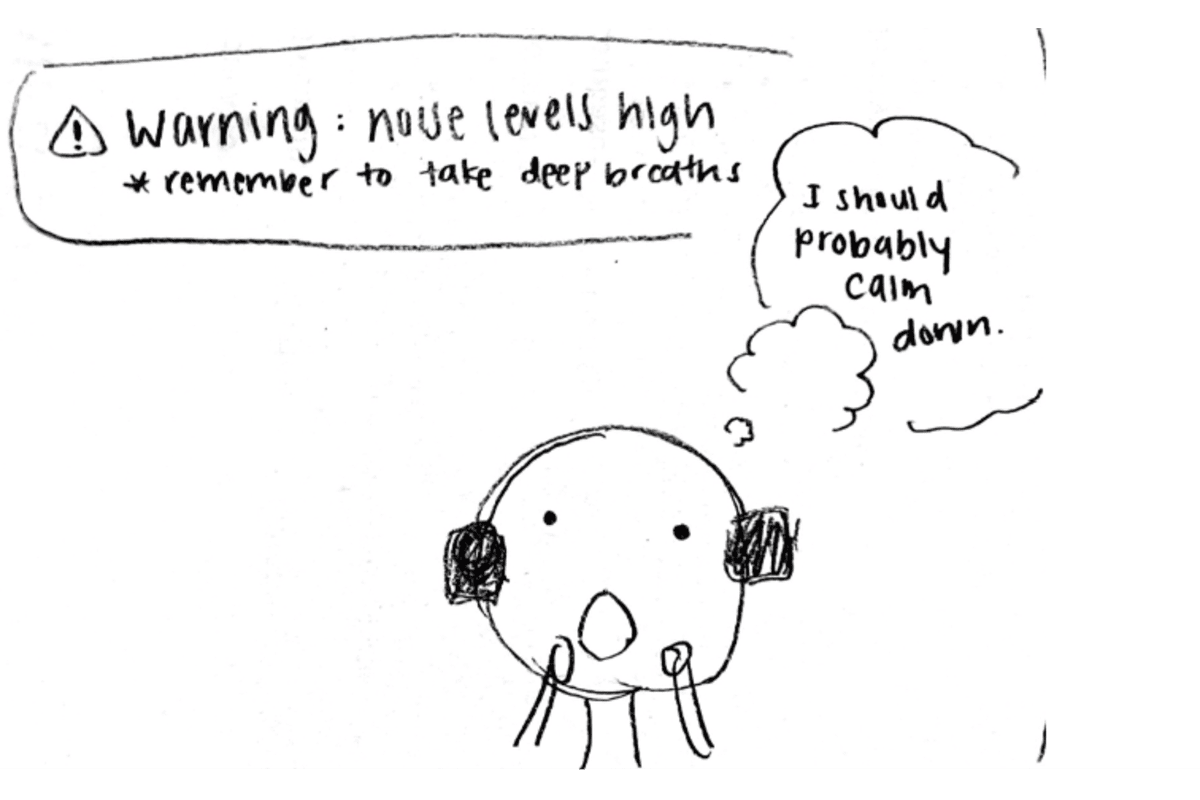 Warning: noise levels high
* remember to take deep breaths
I should
probably
calm
down.